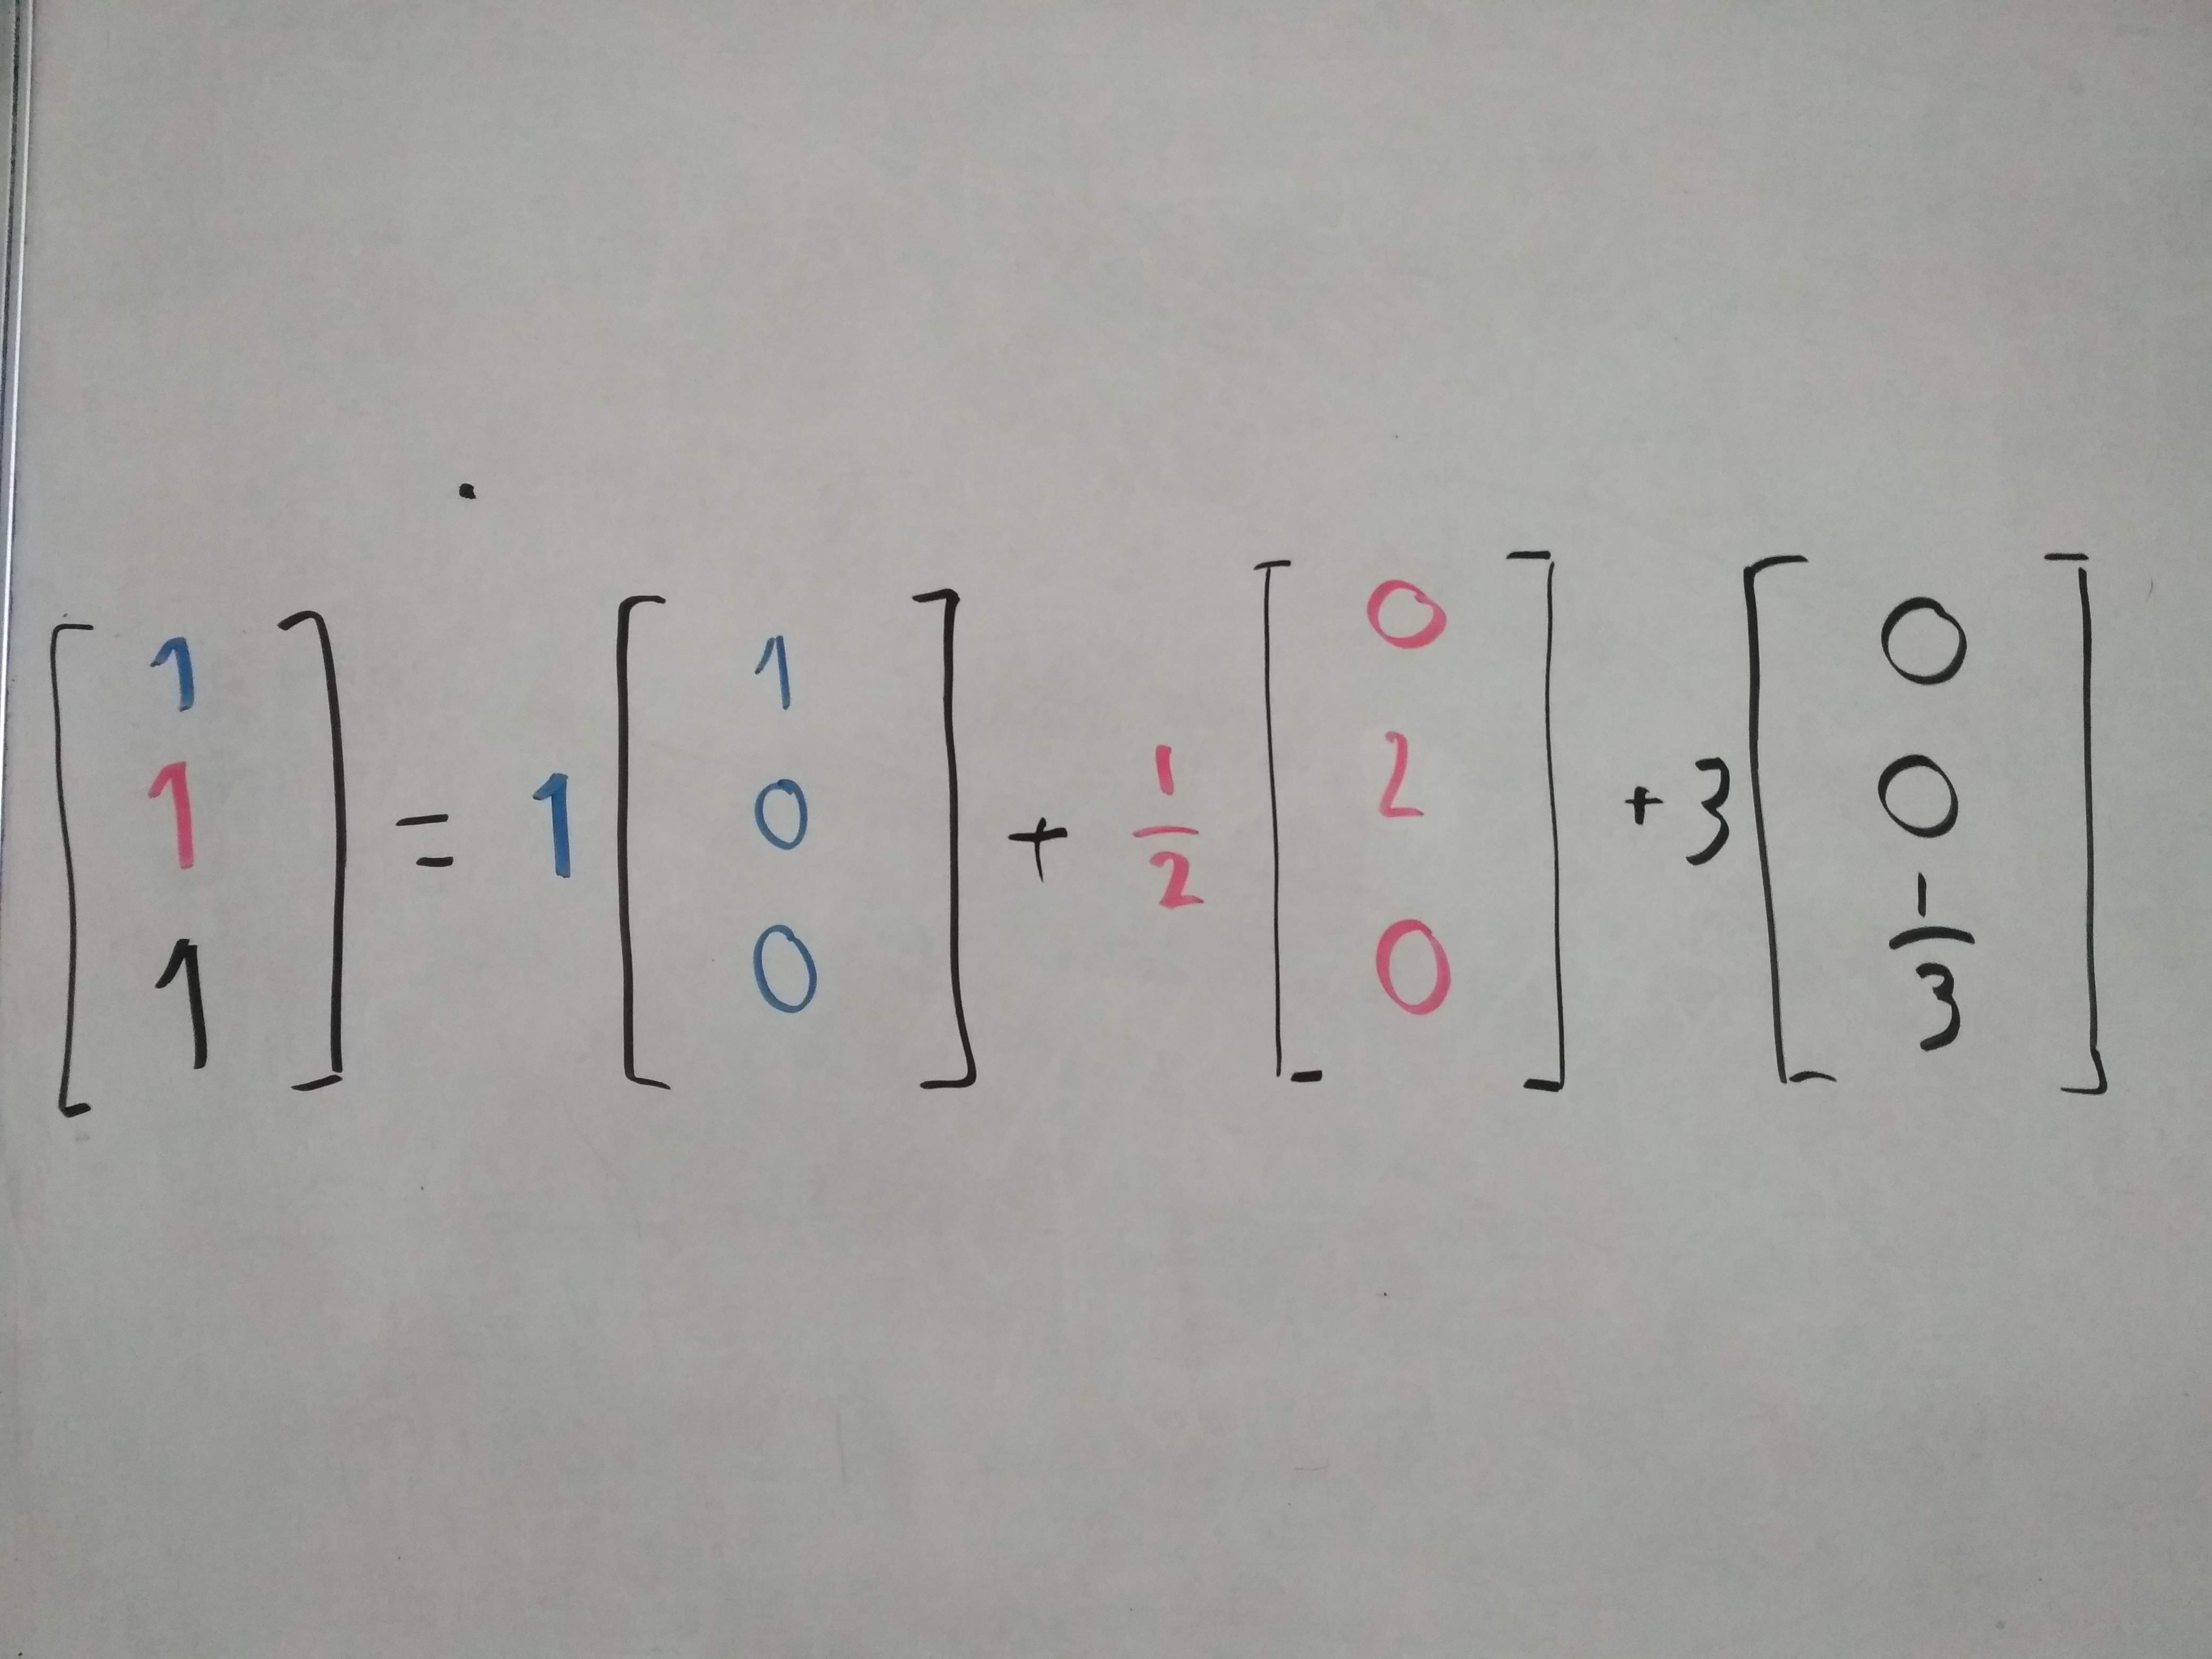 [1 1 1] = 1 [1 0 0] + 1/2 [0 2 0] + 3 [0 0 1/3]